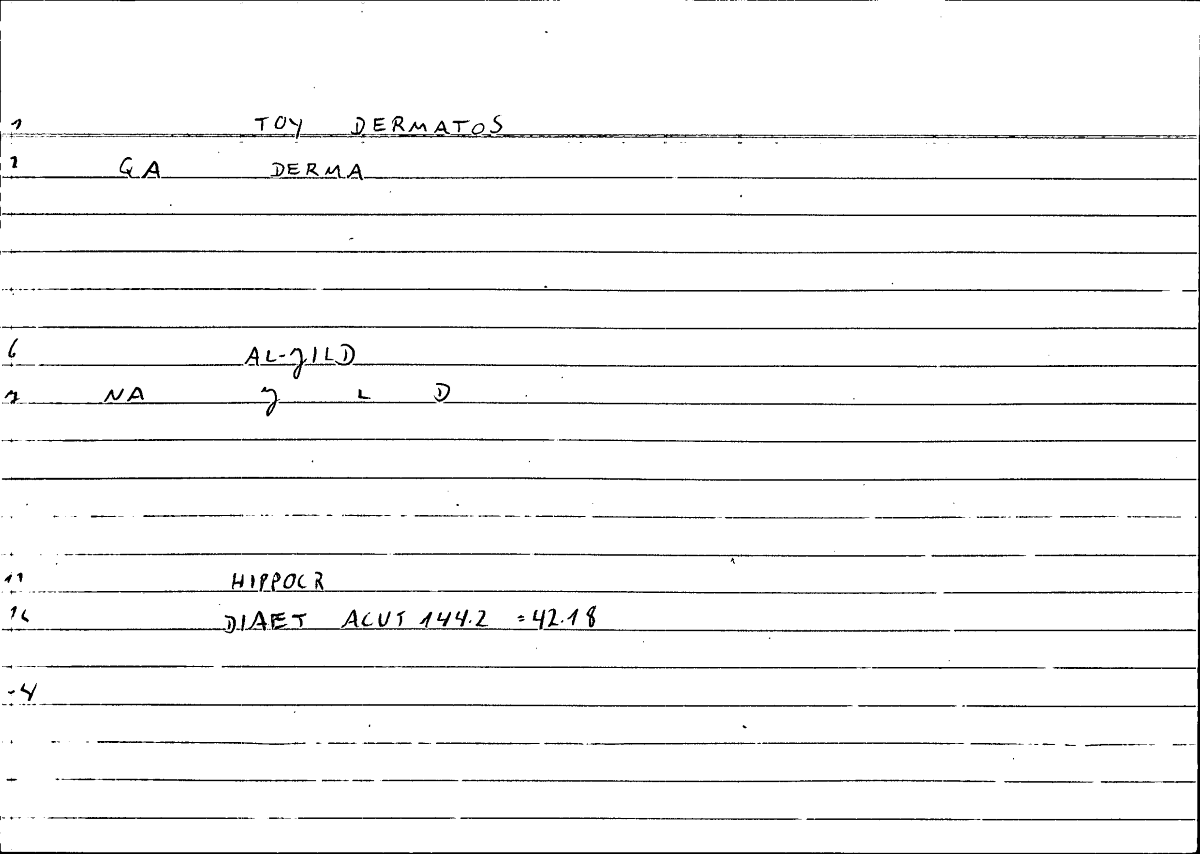 1 TOY DERMATOS
2 GA DERMA
6 AL-ȜILD
7 NA Ȝ L D
11 HIPPOCR
16 DIAET ACUT 144.2 =42.18
-4